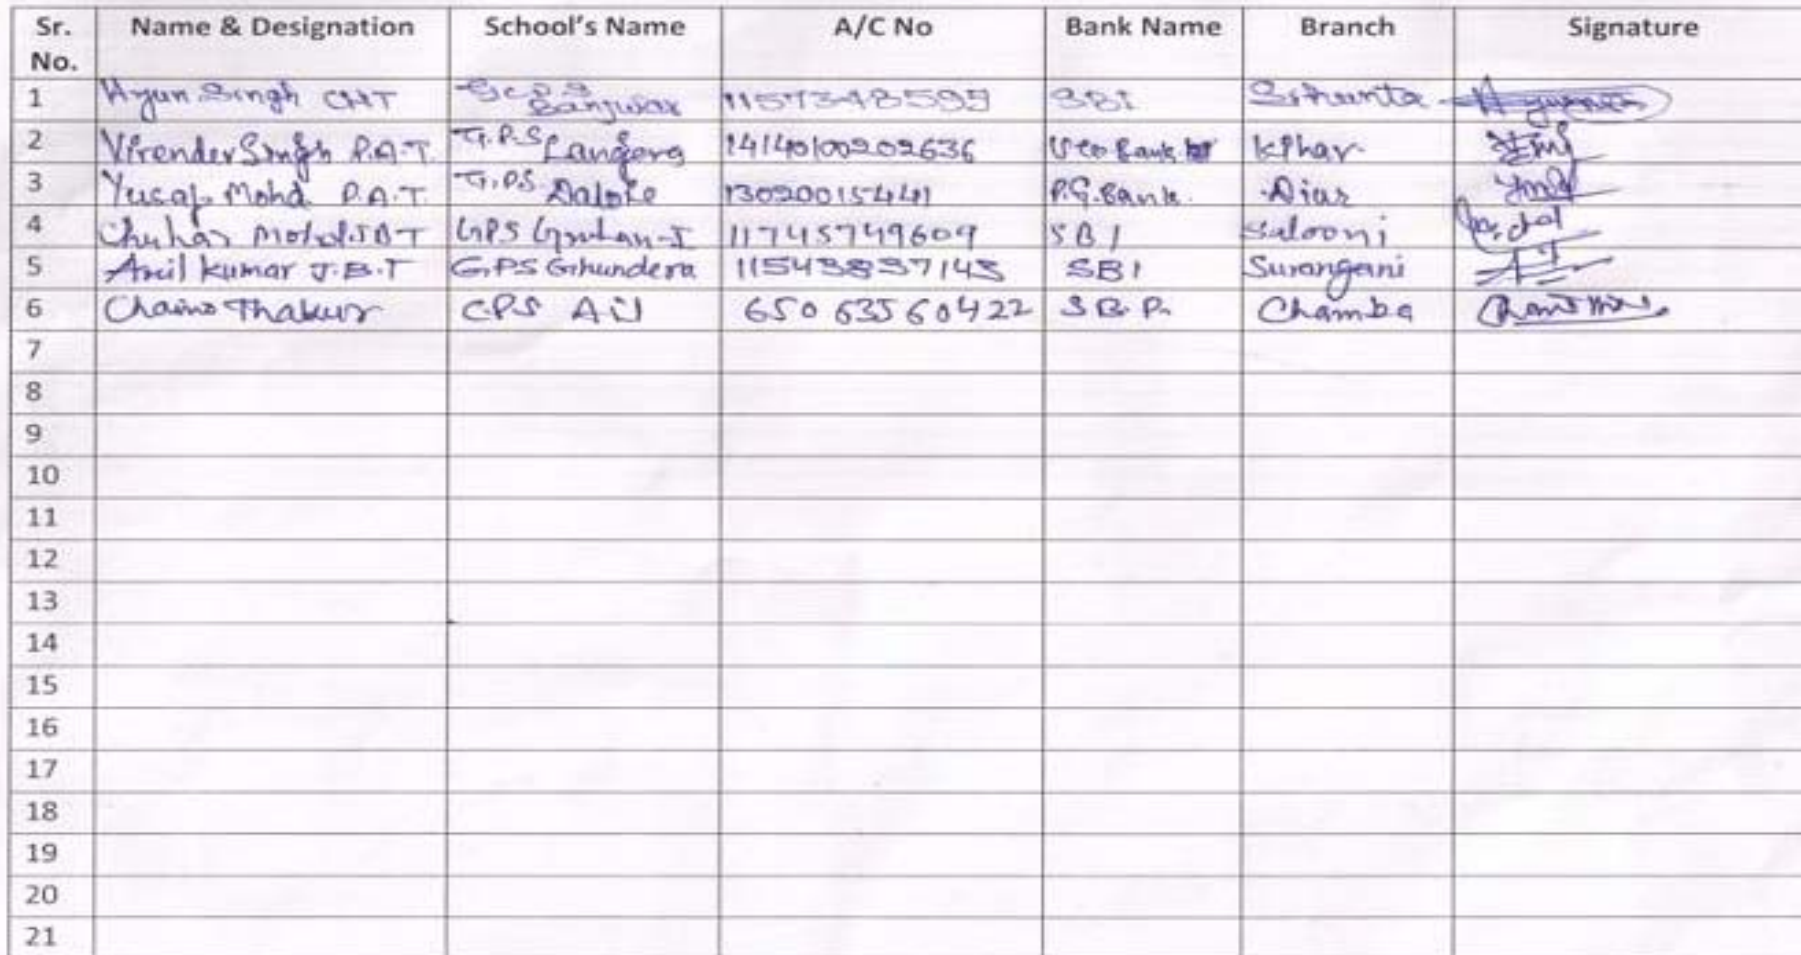 Sr. No. Name & Designation School's Name A/C No Bank Name Branch Signature
1 Singh CHT 11573485 SBI Sihunta
2 Virender Singh P.A.T. G.P.S Langera 14140100202636 Uco Bank Kihar
3 Yusaf Mohd P.A.T. G.P.S. 13020015441 P.G. Bank. Diur
4 Chuhar Mohd. JBT GPS 11745749609 SBI Salooni
5 Anil Kumar J.B.T G.P.S Ghundera 11543837143 SBI Surangani
6 Thakur GPS Ail 65063560422 S.B.P. Chamba
7
8
9
10
11
12
13
14
15
16
17
18
19
20
21